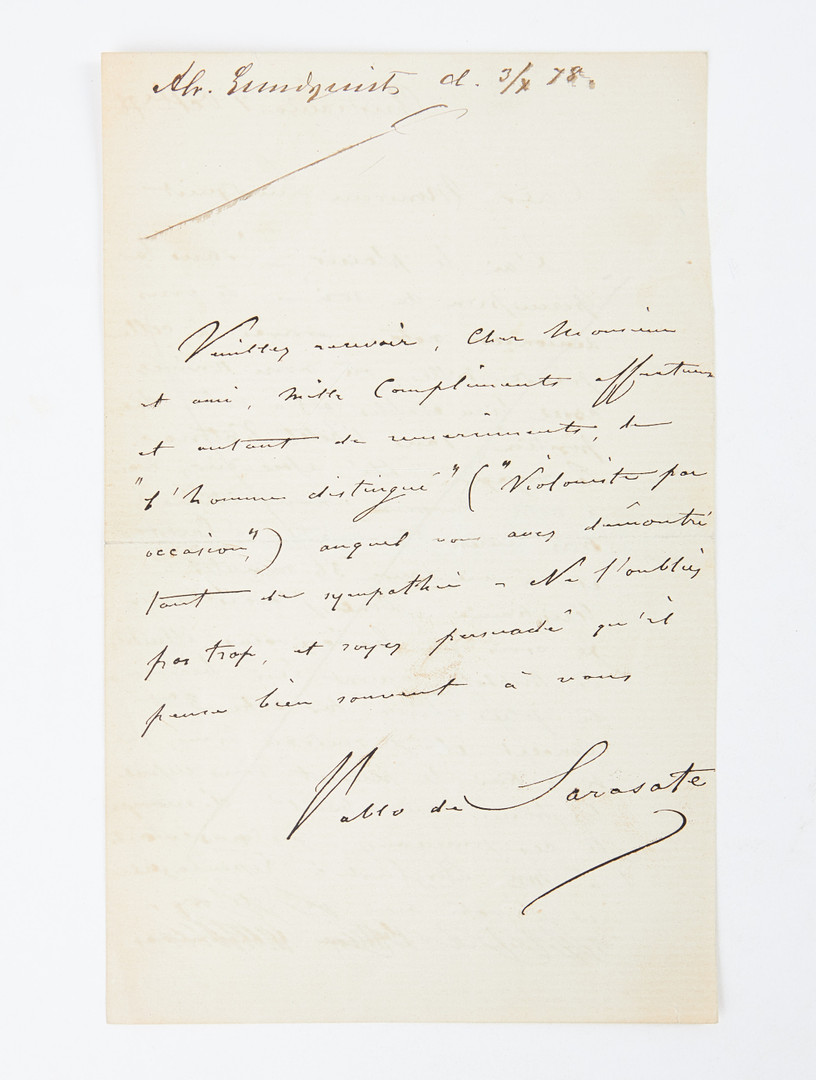 Abr. Lundquist d. 3/X 78.
Veuillez recevoir, Cher Monsieur
et ami, mille Compliments affectueux
et autant de remerciments, de
"l'homme distingué" ("Violoniste par
occasion",) auquel vous avez démontré
tant de sympathie – Ne l'oubliez
pas trop, et soyez persuadé qu'il
pense bien souvent à vous
Pablo de Sarasate